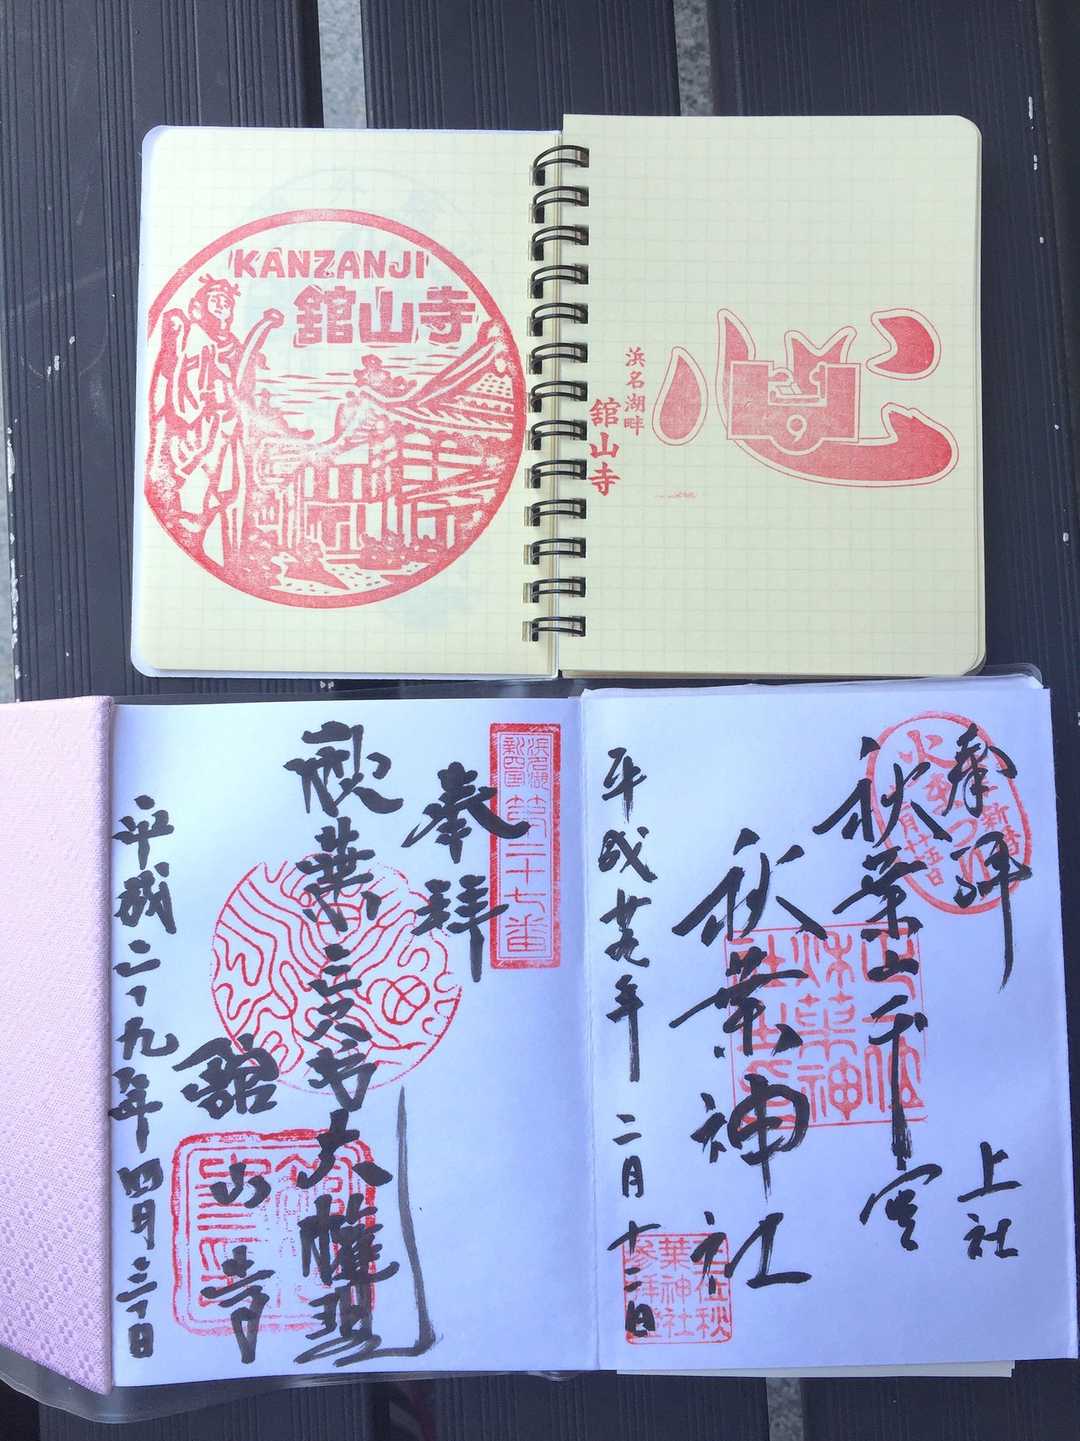 KANZANJI
舘山寺
浜名湖畔
舘山寺
9
奉拝
浜名湖
新四国
第二十七番
秋葉三尺坊大権現
舘山寺
平成二十九年四月三十日
奉拝
上社
火
秋葉山本宮
秋葉神社
平成廿九年二月十二日
正位秋
葉神社
参拝證